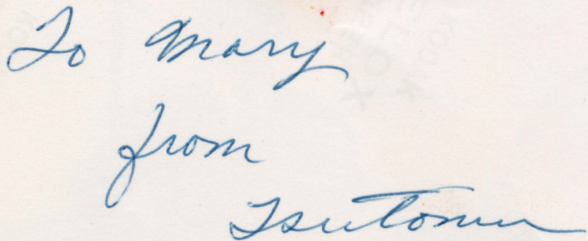 To Mary
from
Tsutomu